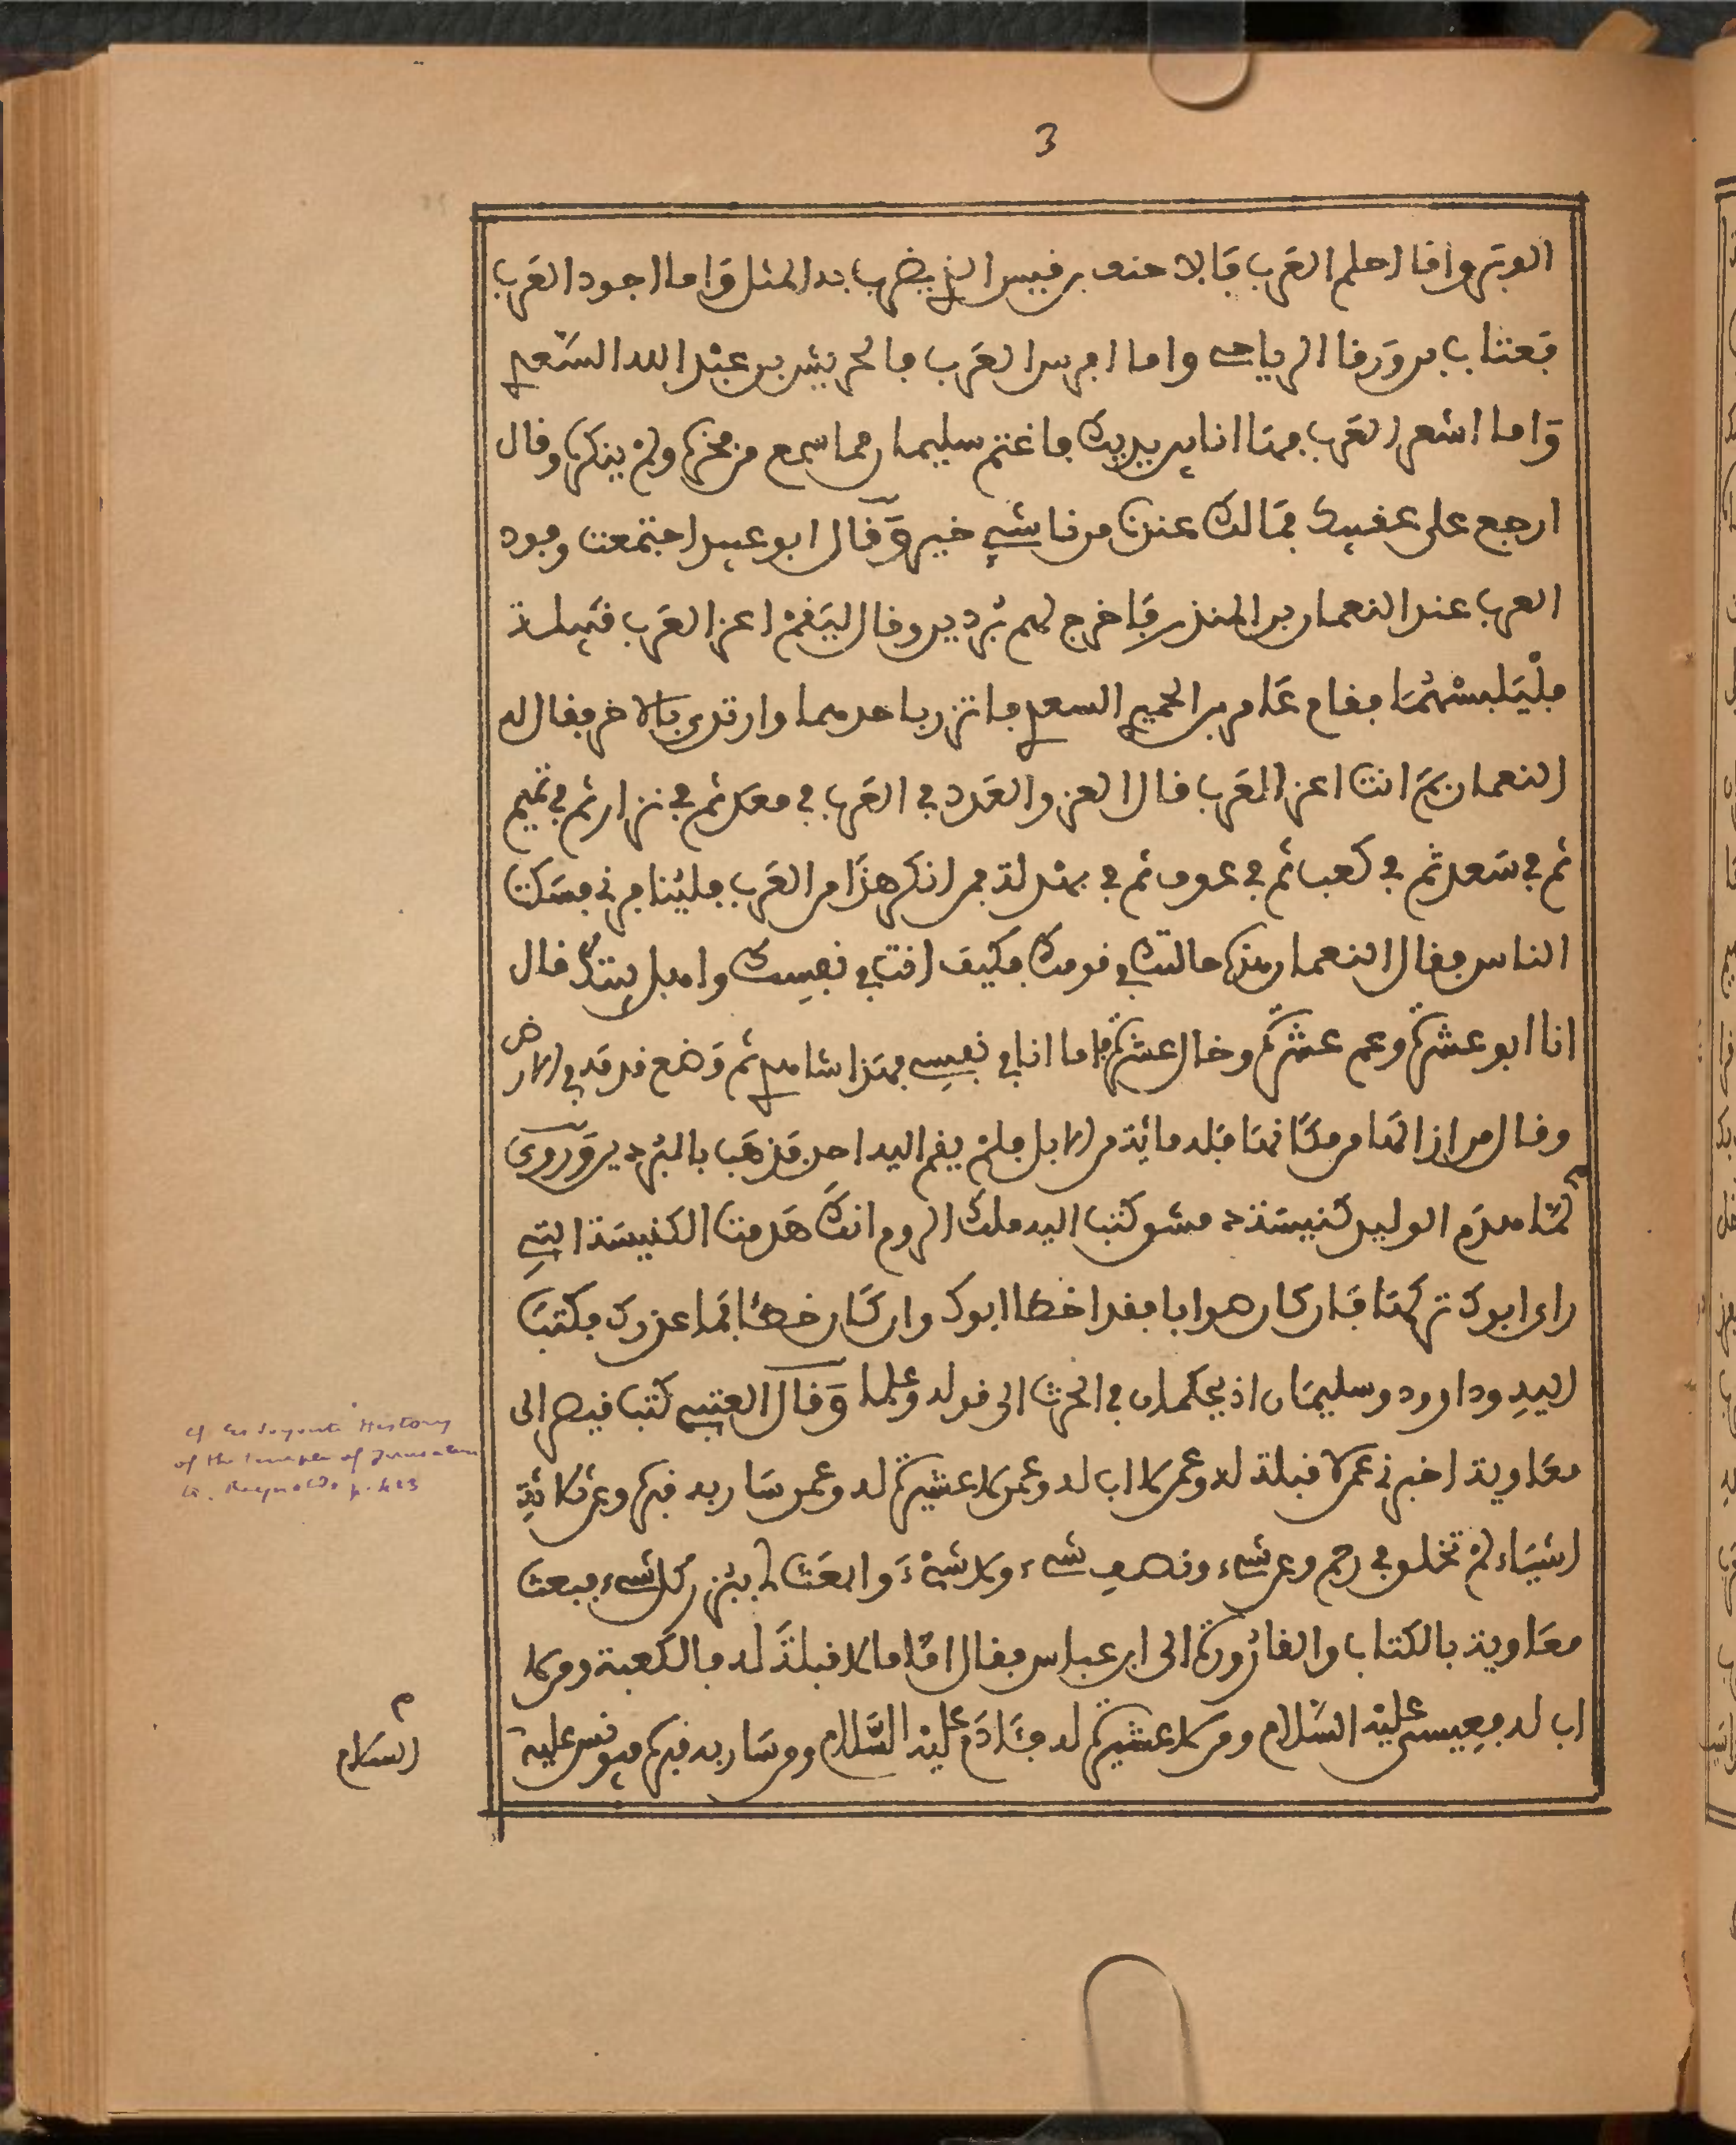 3
الوبر واما احلم العرب فالاحنف بن قيس الذي يضرب به المثل واما اجود العرب
فعتاب بن ورقا الرياحي واما افرس العرب فالحريش بن عبد الله السعدي
واما اشعر العرب فها انا بين يديك فاغتم سليمان مما سمع من فخره ولم ينكره وقال
ارجع على عقبيك فما لك عندنا شيء خير وقال ابو عبيد اجتمعت وفود
العرب عند النعمان بن المنذر فاخرج لهم بردين وقال ليقم اعز العرب قبيلة
فليلبسهما فقام عامر بن احمير السعدي فاتزر باحدهما وارتدى بالاخر فقال له
النعمان بم انت اعز العرب قال العز والعدد في العرب في معد ثم في نزار ثم في تميم
ثم في سعد ثم في كعب ثم في عوف ثم في بهدلة فمن انكر هذا من العرب فلينافرني فسكت
الناس فقال النعمان هذه حالتك في قومك فكيف انت في نفسك واهل بيتك قال
انا ابو عشرة وعم عشرة وخال عشرة فاما انا في نفسي فهذا شاهدي ثم وضع قدمه في الارض
وقال من ازالها من مكانها فله مائة من الابل فلم يقم اليه احد فذهب بالبردين وروي
لما هدم الوليد كنيسة دمشق كتب اليه ملك الروم انك هدمت الكنيسة التي
راى ابوك تركها فان كان صوابا فقد اخطا ابوك وان كان خطأ فما عذرك فكتب
اليه وداوود وسليمان اذ يحكمان في الحرث الى قوله وعلما وقال العتبي كتب قيصر الى
معاوية اخبرني عمن لا قبلة له وعمن لا اب له وعمن لا عشيرة له وعمن سار به قبره وعن ثلاثة
اشياء لم تخلق في رحم وعن شيء ونصف شيء ولا شيء وابعث لي ببزر كل شيء فبعث
معاوية بالكتاب والقارورة الى ابن عباس فقال اما ما لا قبلة له فالكعبة ومن لا
اب له فعيسى عليه السلام ومن لا عشيرة له فآدم عليه السلام ومن سار به قبره فيونس عليه
السلام
History
of the temple of Jerusalem
Reynolds p. 413